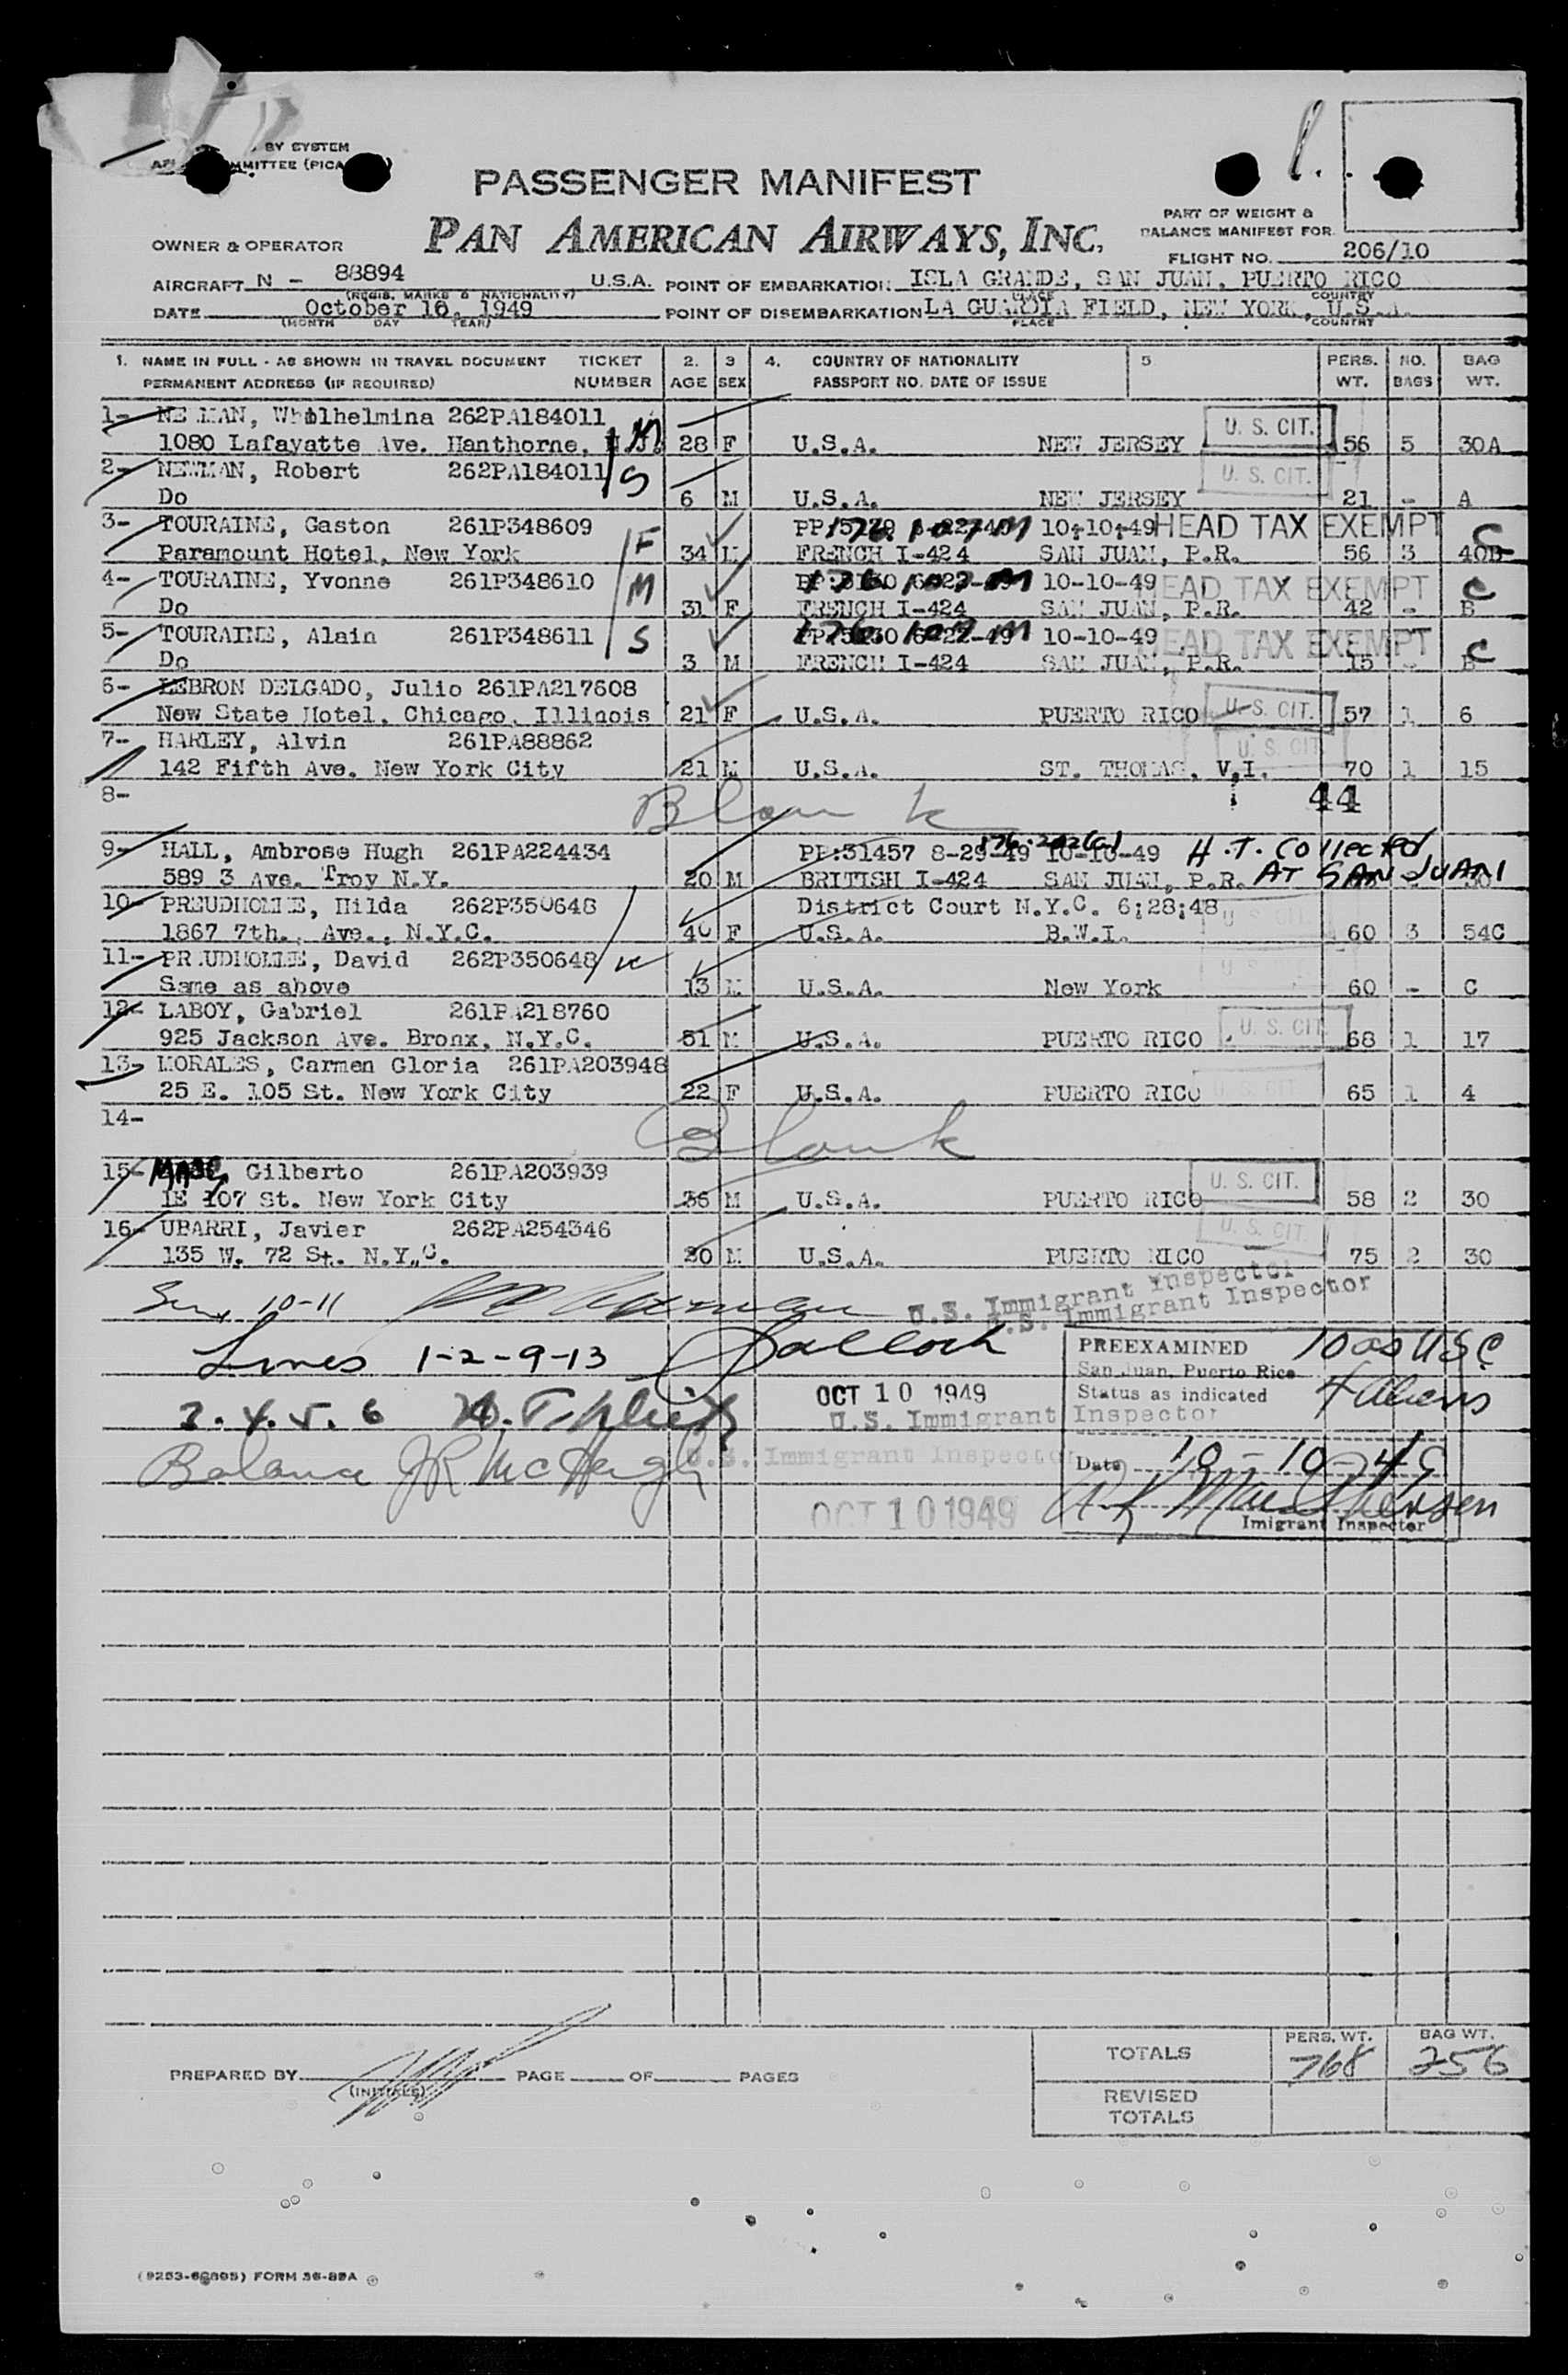 BY SYSTEM
MMITTEE (PICA
PASSENGER MANIFEST
PAN AMERICAN AIRWAYS, INC.
PART OF WEIGHT &
BALANCE MANIFEST FOR
OWNER & OPERATOR
FLIGHT NO. 206/10
AIRCRAFT N - 88894 U.S.A. POINT OF EMBARKATION ISLA GRANDE, SAN JUAN, PUERTO RICO
(REGIS. MARKS & NATIONALITY) PLACE COUNTRY
DATE October 10, 1949 POINT OF DISEMBARKATION LA GUARDIA FIELD, NEW YORK, U.S.A.
(MONTH DAY YEAR) PLACE COUNTRY
1. NAME IN FULL - AS SHOWN IN TRAVEL DOCUMENT TICKET 2. 3 4. COUNTRY OF NATIONALITY 5 PERS. NO. BAG
PERMANENT ADDRESS (IF REQUIRED) NUMBER AGE SEX PASSPORT NO. DATE OF ISSUE WT. BAGS WT.
1- NEWMAN, Whilhelmina 262PA184011 U. S. CIT.
1080 Lafayatte Ave. Hanthorne, M 28 F U.S.A. NEW JERSEY 56 5 30A
2- NEWMAN, Robert 262PA184011 S U. S. CIT.
Do 6 M U.S.A. NEW JERSEY 21 - A
3- TOURAINE, Gaston 261P348609 10-10-49 HEAD TAX EXEMPT C
Paramount Hotel, New York F 34 M FRENCH I-424 SAN JUAN, P.R. 56 3 40B
4- TOURAINE, Yvonne 261P348610 M 10-10-49 HEAD TAX EXEMPT C
Do 31 F FRENCH I-424 SAN JUAN, P.R. 42 - B
5- TOURAINE, Alain 261P348611 S 10-10-49 HEAD TAX EXEMPT C
Do 3 M FRENCH I-424 SAN JUAN, P.R. 15 - B
6- LEBRON DELGADO, Julio 261PA217608
New State Hotel, Chicago, Illinois 21 F U.S.A. PUERTO RICO U. S. CIT. 57 1 6
7- HARLEY, Alvin 261PA88862 U. S. CIT.
142 Fifth Ave. New York City 21 M U.S.A. ST. THOMAS, V.I. 70 1 15
8- Blank 44
9- HALL, Ambrose Hugh 261PA224434 PP:31457 8-29-49 10-10-49 H.T. Collected
589 3 Ave. Troy N.Y. 20 M BRITISH I-424 SAN JUAN, P.R. AT SAN JUAN
10- PREUDHOMME, Hilda 262P350648 District Court N.Y.C. 6;28;48
1867 7th., Ave., N.Y.C. 40 F U.S.A. B.W.I. 60 3 54C
11- PREUDHOMME, David 262P350648
Same as above 13 M U.S.A. New York 60 - C
12- LABOY, Gabriel 261PA218760
925 Jackson Ave. Bronx, N.Y.C. 51 M U.S.A. PUERTO RICO U. S. CIT. 68 1 17
13- MORALES, Carmen Gloria 261PA203948
25 E. 105 St. New York City 22 F U.S.A. PUERTO RICO U. S. CIT. 65 1 4
14- Blank
15- Gilberto 261PA203939
1E 107 St. New York City 36 M U.S.A. PUERTO RICO U. S. CIT. 58 2 30
16- UBARRI, Javier 262PA254346 U. S. CIT.
135 W. 72 St. N.Y.C. 30 M U.S.A. PUERTO RICO 75 2 30
10-11
U.S. Immigrant Inspector
U.S. Immigrant Inspector
Lines 1-2-9-13
PREEXAMINED 10 as USC
San Juan, Puerto Rico
OCT 10 1949 Status as indicated 4 aliens
3. 4. 5. 6 U.S. Immigrant Inspector
Balance J R McHugh U.S. Immigrant Inspector
Date 10-10-49
OCT 10 1949
Imigrant Inspector
TOTALS PERS. WT. 768 BAG WT. 256
PREPARED BY (INITIALS) PAGE OF PAGES
REVISED
TOTALS
FORM 36-89A